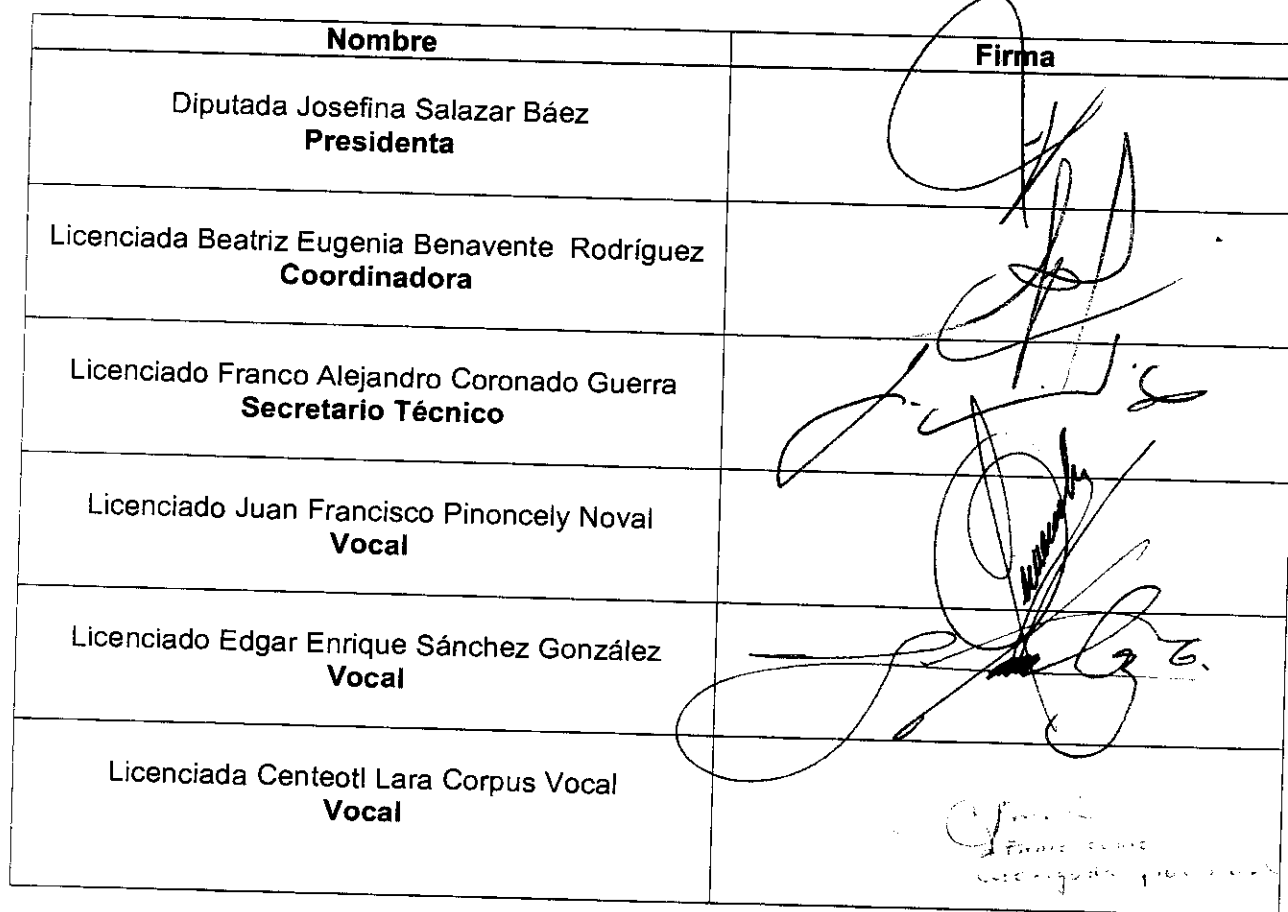 Nombre
Firma
Diputada Josefina Salazar Báez
Presidenta
Licenciada Beatriz Eugenia Benavente Rodríguez
Coordinadora
Licenciado Franco Alejandro Coronado Guerra
Secretario Técnico
Licenciado Juan Francisco Pinoncely Noval
Vocal
Licenciado Edgar Enrique Sánchez González
Vocal
Licenciada Centeotl Lara Corpus Vocal
Vocal